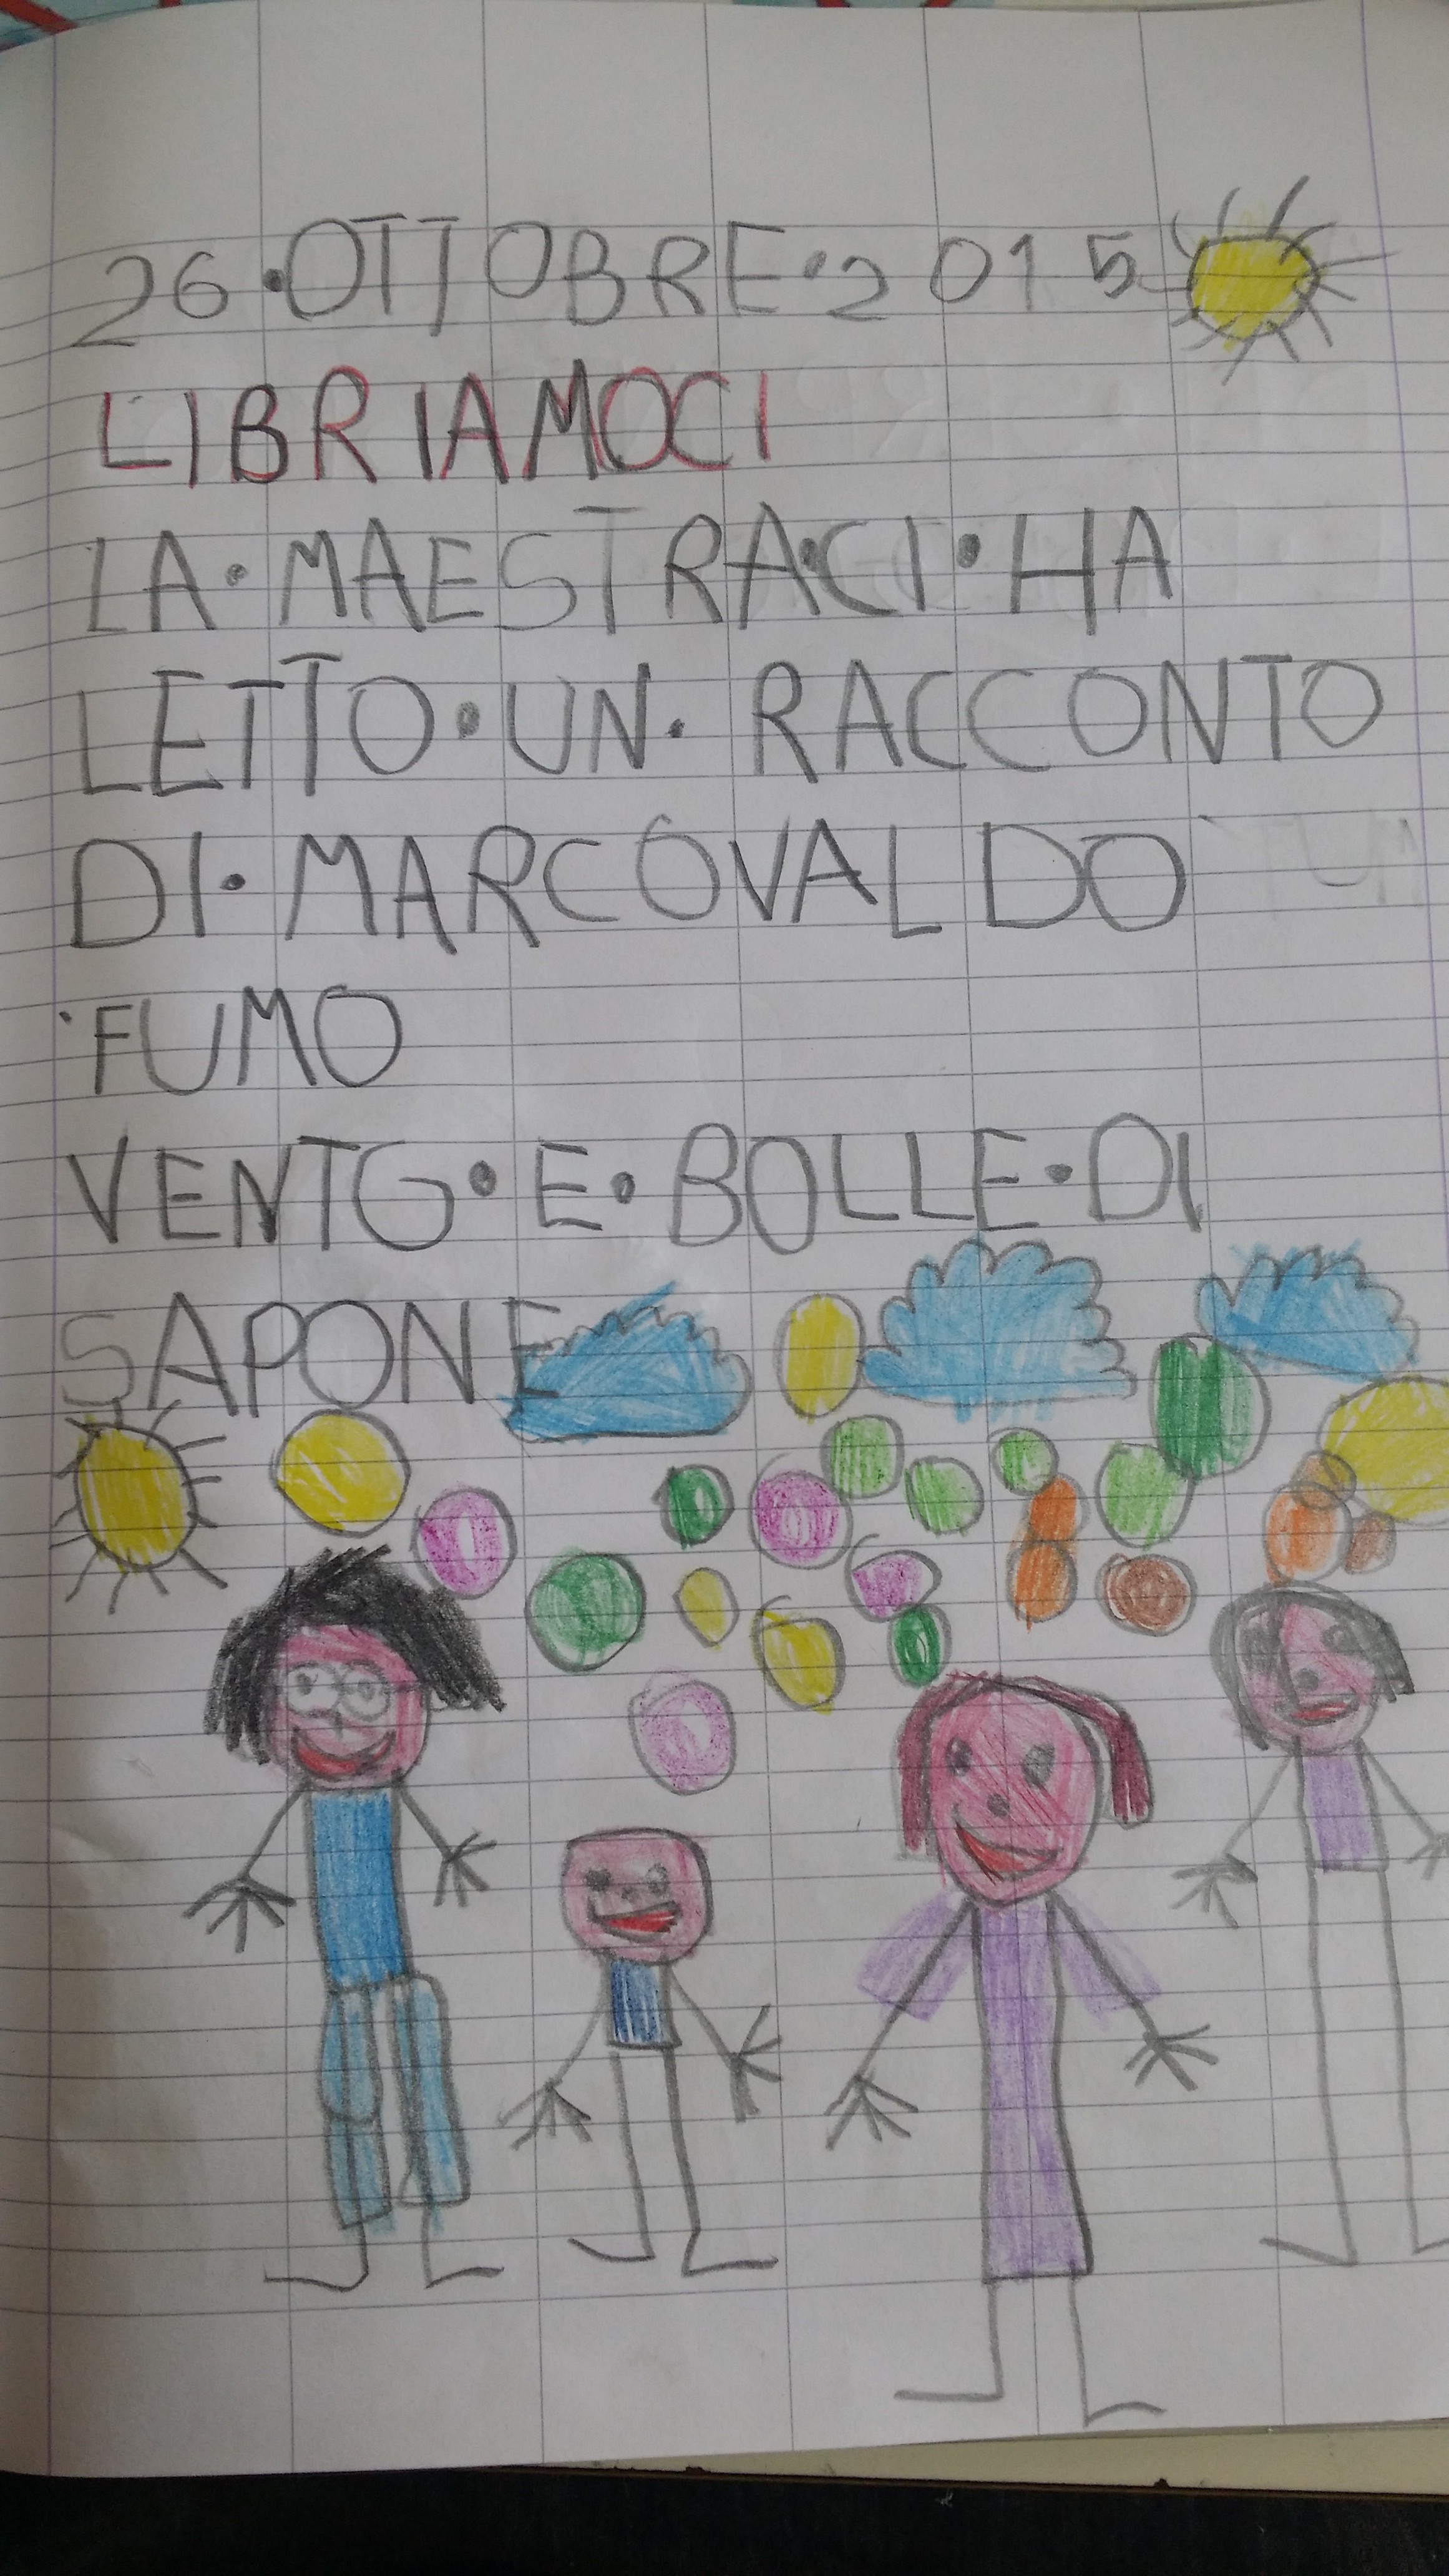 26·OTTOBRE·2015
LIBRIAMOCI
LA·MAESTRA·CI·HA
LETTO·UN·RACCONTO
DI·MARCOVALDO
FUMO
VENTO·E·BOLLE·DI
SAPONE